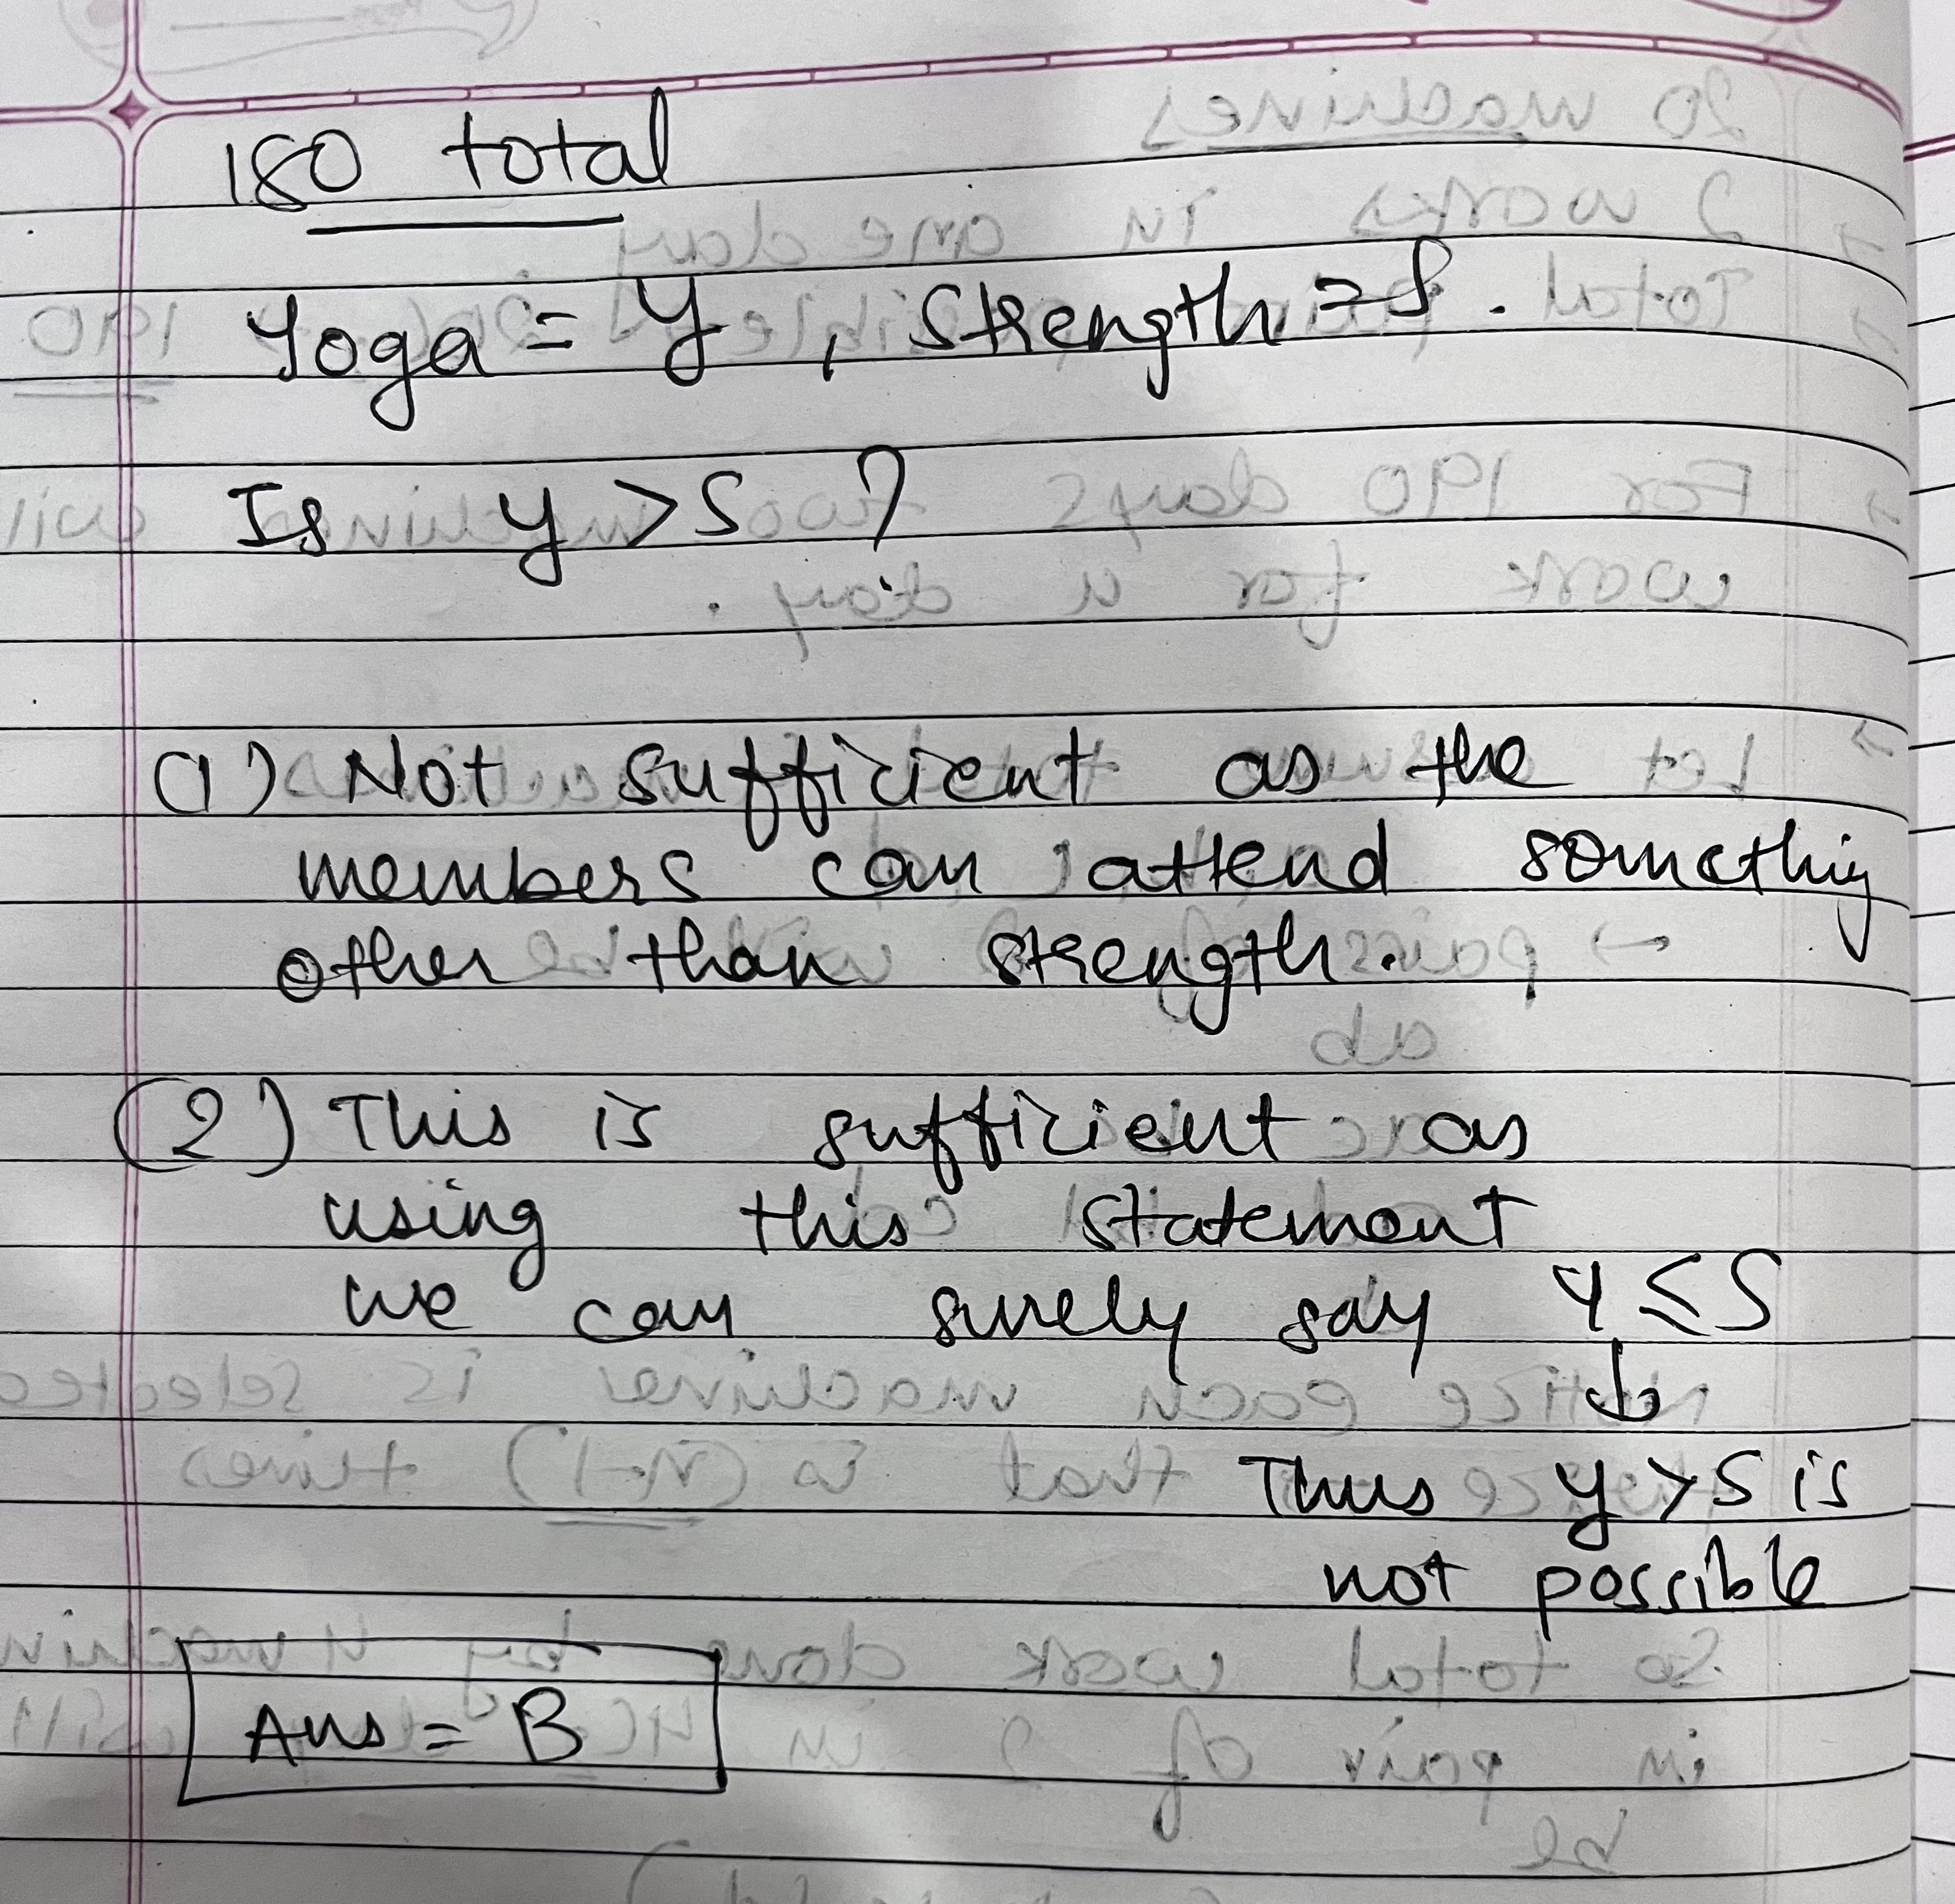 180 total
Yoga = y, Strength = S.
Is y > S ?
(1) Not sufficient as the
members can attend something
other than strength.
(2) This is sufficient as
using this statement
we can surely say y ≤ S
↓
Thus y > S is
not possible
Ans = B